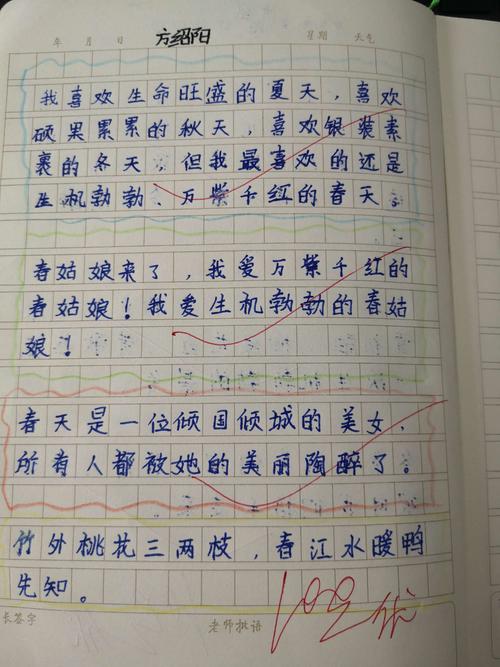 年 月 日 方绍阳 星期 天气
我喜欢生命旺盛的夏天，喜欢
硕果累累的秋天，喜欢银装素
裹的冬天，但我最喜欢的还是
生机勃勃、万紫千红的春天。
春姑娘来了，我爱万紫千红的
春姑娘！我爱生机勃勃的春姑
娘！
春天是一位倾国倾城的美女，
所有人都被她的美丽陶醉了。
竹外桃花三两枝，春江水暖鸭
先知。
长签字 老师批语
100 优